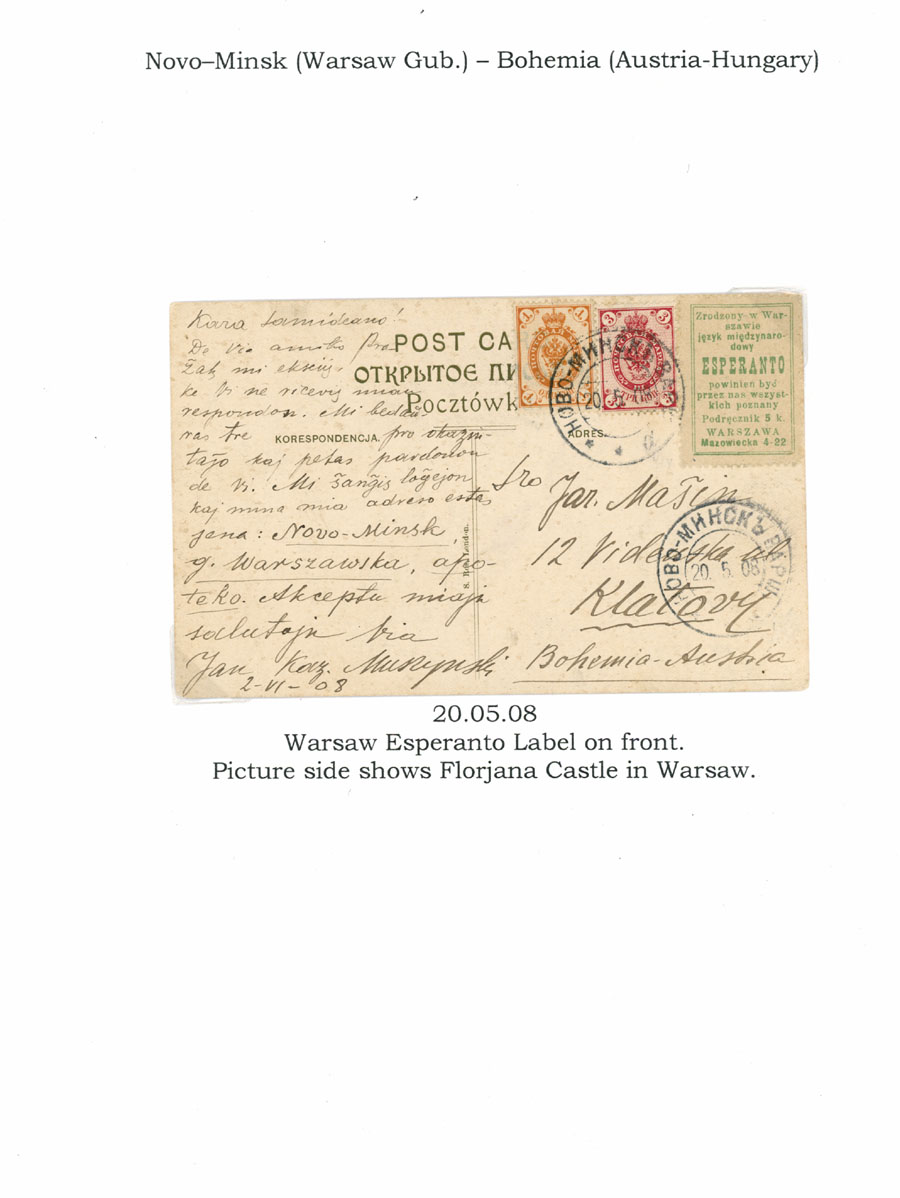 Novo–Minsk (Warsaw Gub.) – Bohemia (Austria-Hungary)
Kara samideano!
De via amiko Pro-
ke Vi ne ricevis mian
respondon. Mi bedaŭ-
ras tre pro okazin-
taĵo kaj petas pardonon
de Vi. Mi ŝanĝis loĝejon
kaj nuna mia adreso estas
jena: Novo-Minsk,
g. Warszawska, apo-
teko. Akceptu miajn
salutojn Via
Jan Kaz. Muszynski
2-VI-08
POST CA
ОТКРЫТОЕ ПИ
Pocztówk
KORESPONDENCJA.
ADRES.
1 1
3 3
3 3
НОВО-МИНСКЪ
20. 5
Zrodzony w War-
szawie
język międzynaro-
dowy
ESPERANTO
powinien być
przez nas wszyst-
kich poznany
Podręcznik 5 k.
WARSZAWA
Mazowiecka 4-22
Sro Jar. Mašin
12 Videnska ul.
Klatovy
Bohemia-Austria
НОВО-МИНСКЪ ВАРШ.
20. 5. 08
London.
20.05.08
Warsaw Esperanto Label on front.
Picture side shows Florjana Castle in Warsaw.